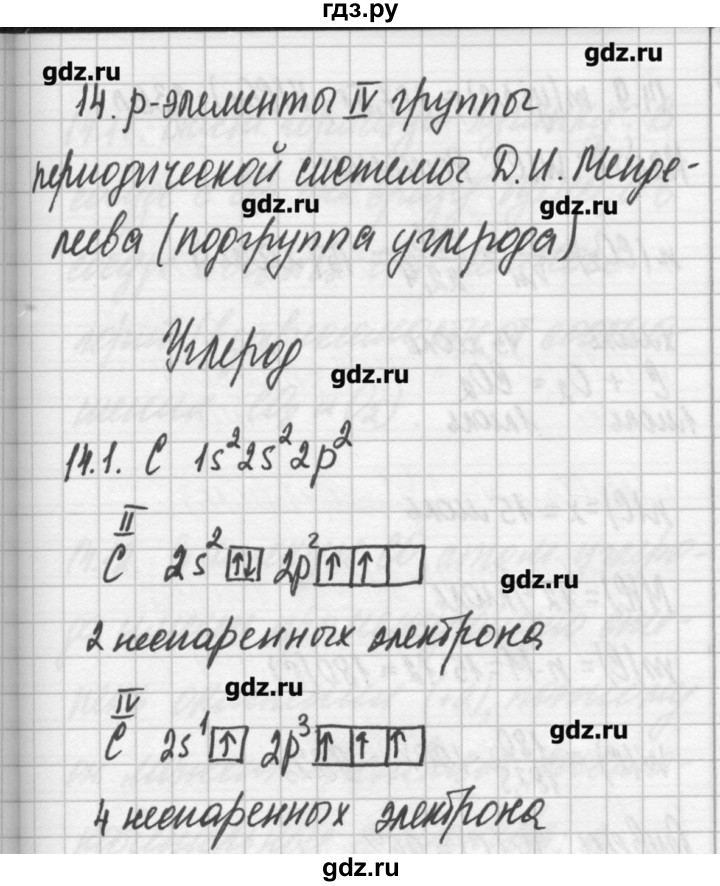 гдз.ру
gdz.ru
gdz.ru
14. р-элементы IV группы
периодической системы Д.И. Менде-
gdz.ru
gdz.ru
леева (подгруппа углерода)
Углерод
gdz.ru
14.1. C 1s² 2s² 2p²
II
C 2s² [↑↓] 2p² [↑][↑][ ]
gdz.ru
2 неспаренных электрона
gdz.ru
IV
C 2s¹ [↑] 2p³ [↑][↑][↑]
gdz.ru
4 неспаренных электрона
gdz.ru